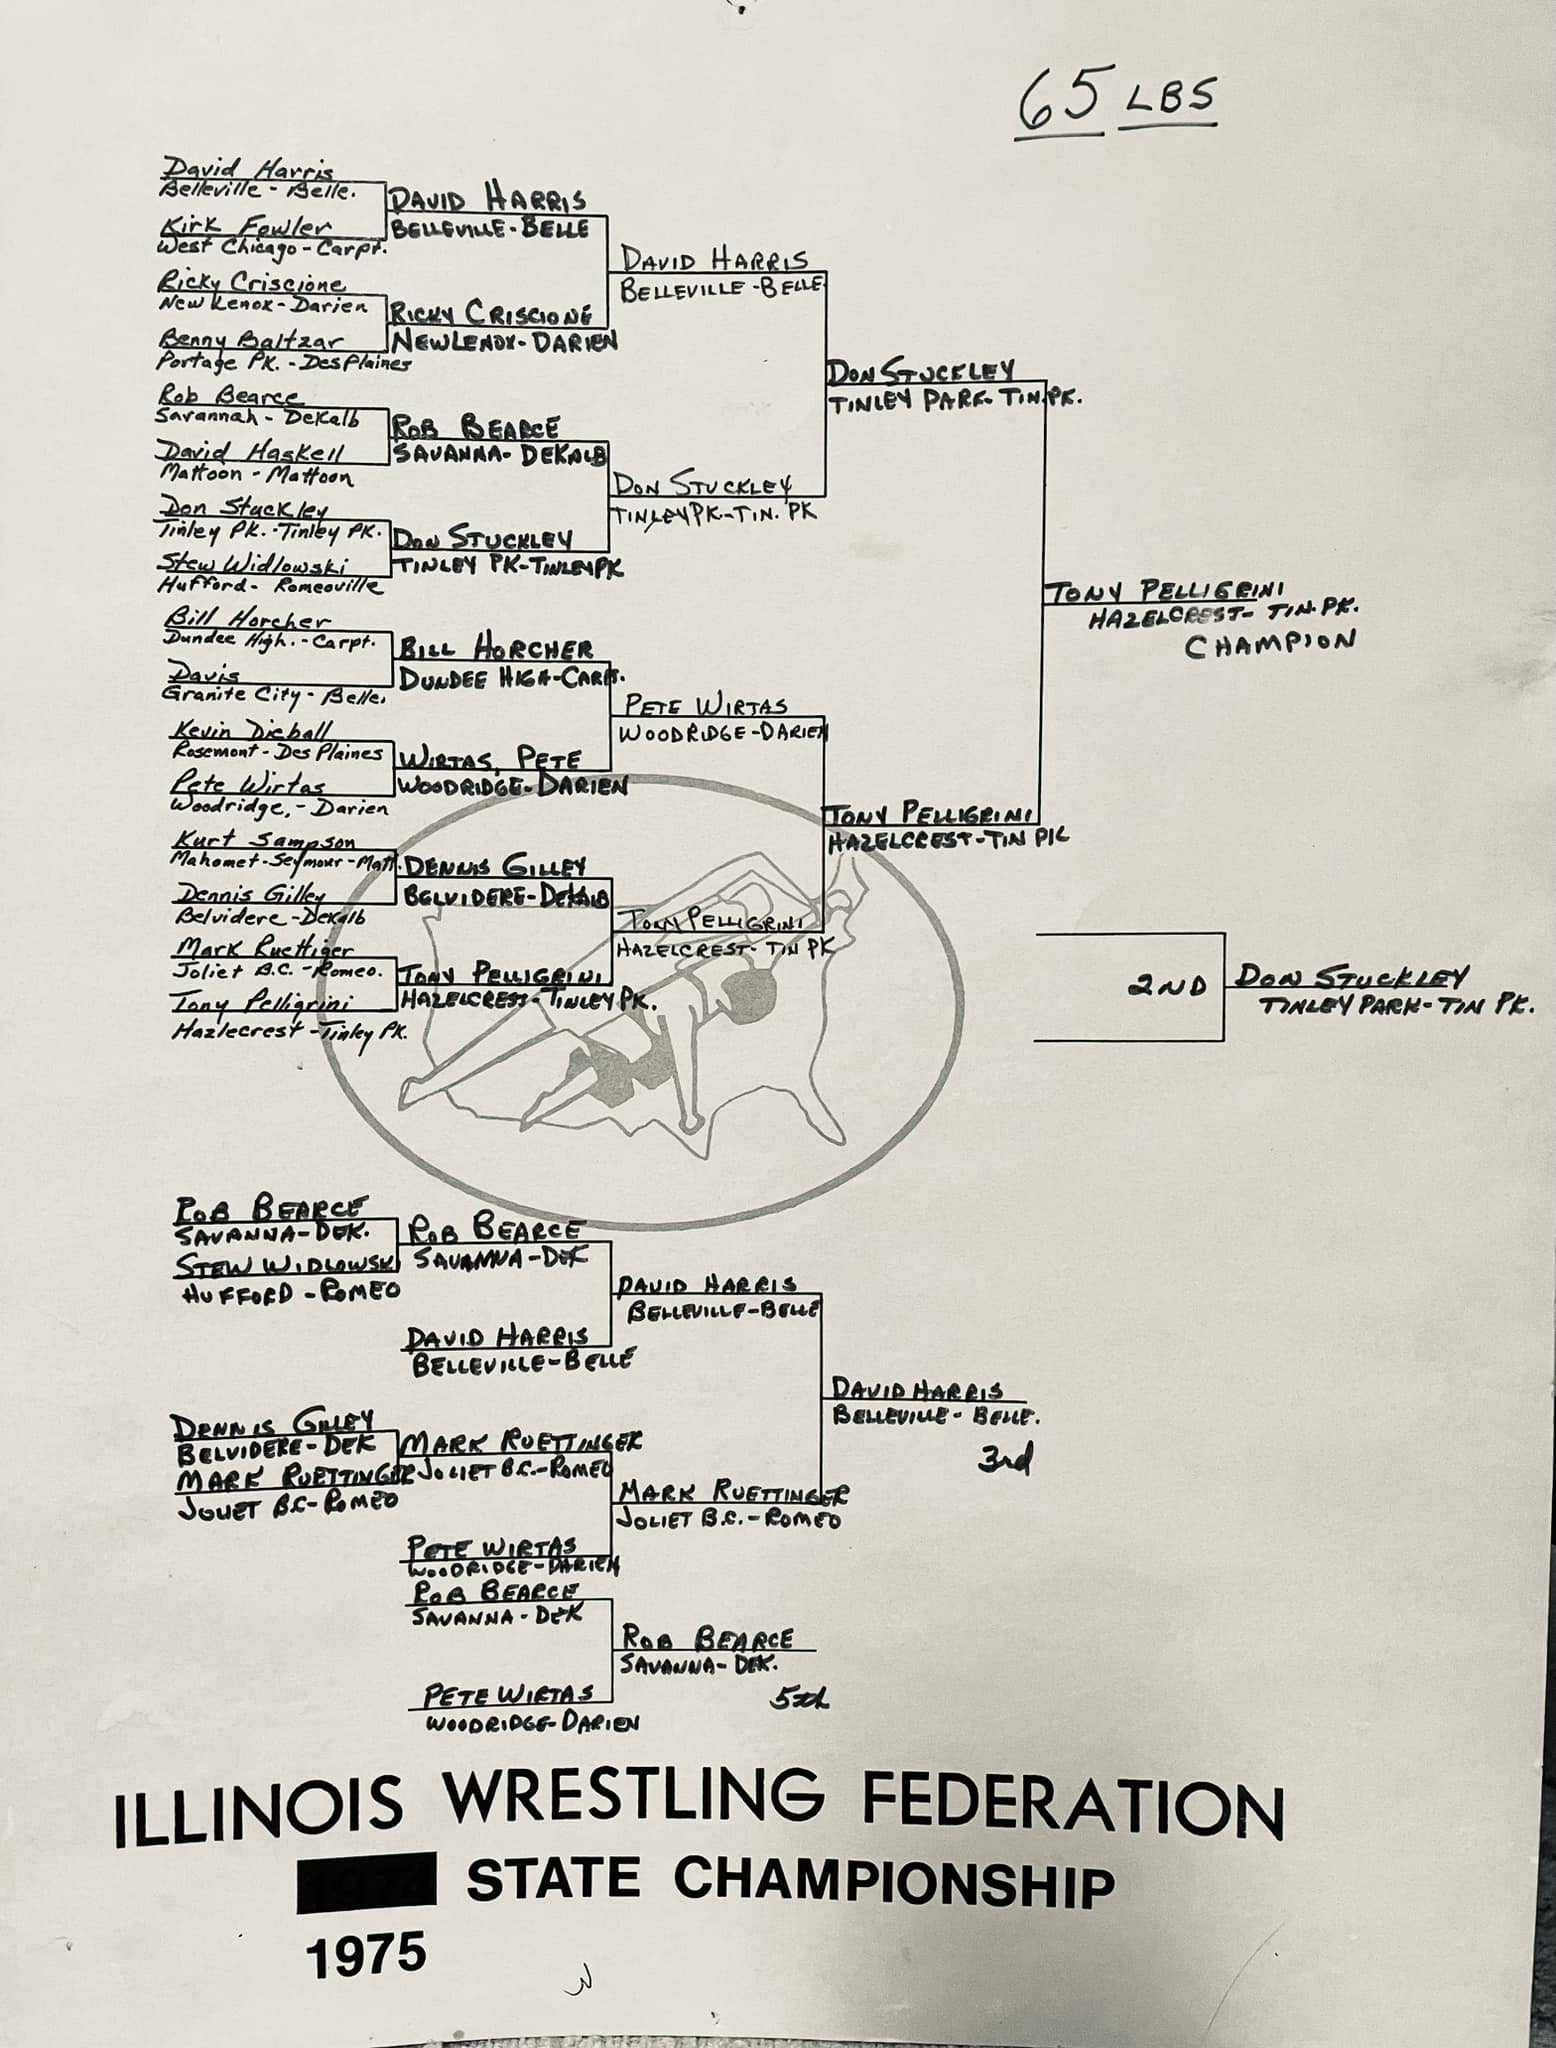 65 LBS
David Harris
Belleville - Belle.
Kirk Fowler
West Chicago - Carpt.
Ricky Criscione
New Lenox - Darien
Benny Baltzar
Portage Pk. - Des Plaines
Rob Bearce
Savannah - DeKalb
David Haskell
Mattoon - Mattoon
Don Stuckley
Tinley Pk. - Tinley Pk.
Stew Widlowski
Hufford - Romeoville
Bill Horcher
Dundee High. - Carpt.
Davis
Granite City - Belle.
Kevin Dieball
Rosemont - Des Plaines
Pete Wirtas
Woodridge, - Darien
Kurt Sampson
Mahomet - Seymour - Matt.
Dennis Gilley
Belvidere - DeKalb
Mark Ruettiger
Joliet B.C. - Romeo.
Tony Pelligrini
Hazlecrest - Tinley Pk.
DAVID HARRIS
BELLEVILLE - BELLE
RICKY CRISCIONE
NEW LENOX - DARIEN
ROB BEARCE
SAVANNA - DEKALB
DON STUCKLEY
TINLEY PK - TINLEY PK
BILL HORCHER
DUNDEE HIGH - CARPT.
WIRTAS, PETE
WOODRIDGE - DARIEN
DENNIS GILLEY
BELVIDERE - DEKALB
TONY PELLIGRINI
HAZELCRESS - TINLEY PK.
DAVID HARRIS
BELLEVILLE - BELLE
DON STUCKLEY
TINLEY PK - TIN. PK
PETE WIRTAS
WOODRIDGE - DARIEN
TONY PELLIGRINI
HAZELCREST - TIN PK
DON STUCKLEY
TINLEY PARK - TIN. PK.
TONY PELLIGRINI
HAZELCREST - TIN PK
TONY PELLIGRINI
HAZELCREST - TIN. PK.
CHAMPION
2ND
DON STUCKLEY
TINLEY PARK - TIN PK.
ROB BEARCE
SAVANNA - DEK.
STEW WIDLOWSKI
HUFFORD - ROMEO
DENNIS GILLEY
BELVIDERE - DEK
MARK RUETTINGER
JOLIET B.C - ROMEO
ROB BEARCE
SAVANNA - DEK
DAVID HARRIS
BELLEVILLE - BELLE
MARK RUETTINGER
JOLIET B.C. - ROMEO
PETE WIRTAS
WOODRIDGE - DARIEN
DAVID HARRIS
BELLEVILLE - BELLE
MARK RUETTINGER
JOLIET B.C. - ROMEO
DAVID HARRIS
BELLEVILLE - BELLE.
3rd
ROB BEARCE
SAVANNA - DEK
PETE WIRTAS
WOODRIDGE - DARIEN
ROB BEARCE
SAVANNA - DEK.
5th
ILLINOIS WRESTLING FEDERATION
STATE CHAMPIONSHIP
1975